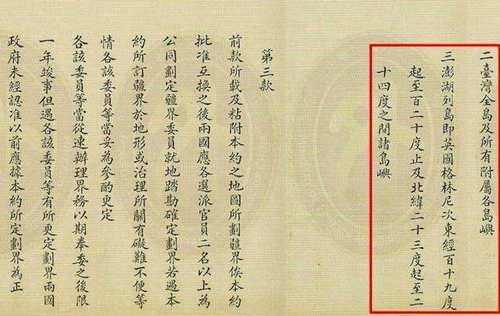 二臺灣全島及所有附屬各島嶼
三澎湖列島即英國格林尼次東經百十九度
起至百二十度止及北緯二十三度起至二
十四度之間諸島嶼
第三款
前款所載及粘附本約之地圖所劃疆界俟本約
批准互換之後兩國應各選派官員二名以上為
公同劃定疆界委員就地踏勘確定劃界若遇本
約所訂疆界於地形或治理所關有礙難不便等
情各該委員等當妥為參酌更定
各該委員等當從速辦理界務以期奉委之後限
一年竣事但遇各該委員等有所更定劃界兩國
政府未經認准以前應據本約所定劃界為正